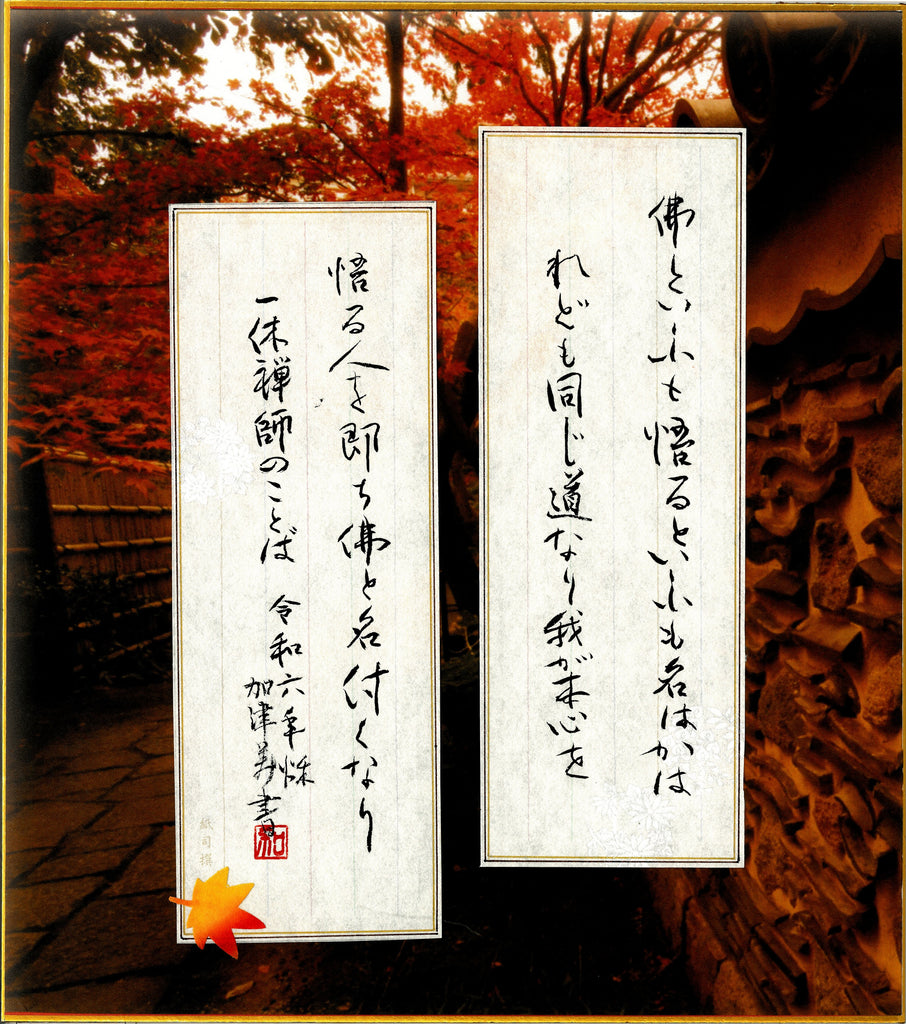 佛といふも悟るといふも名はかは
れども同じ道なり我が本心を
悟る人を即ち佛と名付くなり
一休禅師のことば
令和六年秋
加津美書
和
紙司撰